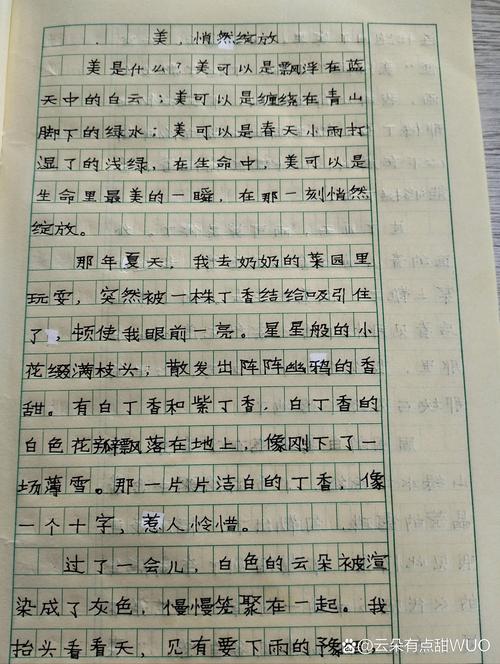 美，悄然绽放
美是什么？美可以是飘浮在蓝
天中的白云；美可以是缠绕在青山
脚下的绿水；美可以是春天小雨打
湿了的浅绿，在生命中，美可以是
生命里最美的一瞬，在那一刻悄然
绽放。
那年夏天，我去奶奶的菜园里
玩耍，突然被一株丁香结给吸引住
了，顿使我眼前一亮。星星般的小
花缀满枝头，散发出阵阵幽鸦的香
甜。有白丁香和紫丁香，白丁香的
白色花瓣飘落在地上，像刚下了一
场薄雪。那一片片洁白的丁香，像
一个十字，惹人怜惜。
过了一会儿，白色的云朵被渲
染成了灰色，慢慢笼聚在一起。我
抬头看看天，见有要下雨的
@云朵有点甜WUO